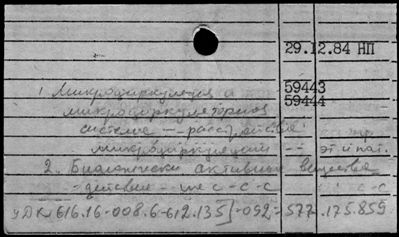 29.12.84 НП
59443
59444
1. Микроциркуляция и
микроциркуляторная
система -- расстройства
микроциркуляции -- эт и пат.
2. Биологически активные вещества
- действие - на с-с-с с-с
УДК 616.16-008.6-612.135]-092-577.175.859